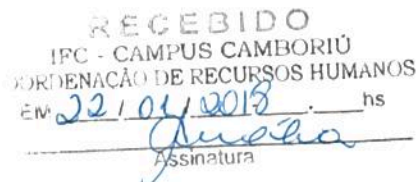 RECEBIDO
IFC - CAMPUS CAMBORIÚ
ORDENAÇÃO DE RECURSOS HUMANOS
EM 22 / 01 / 2018 . hs
Assinatura